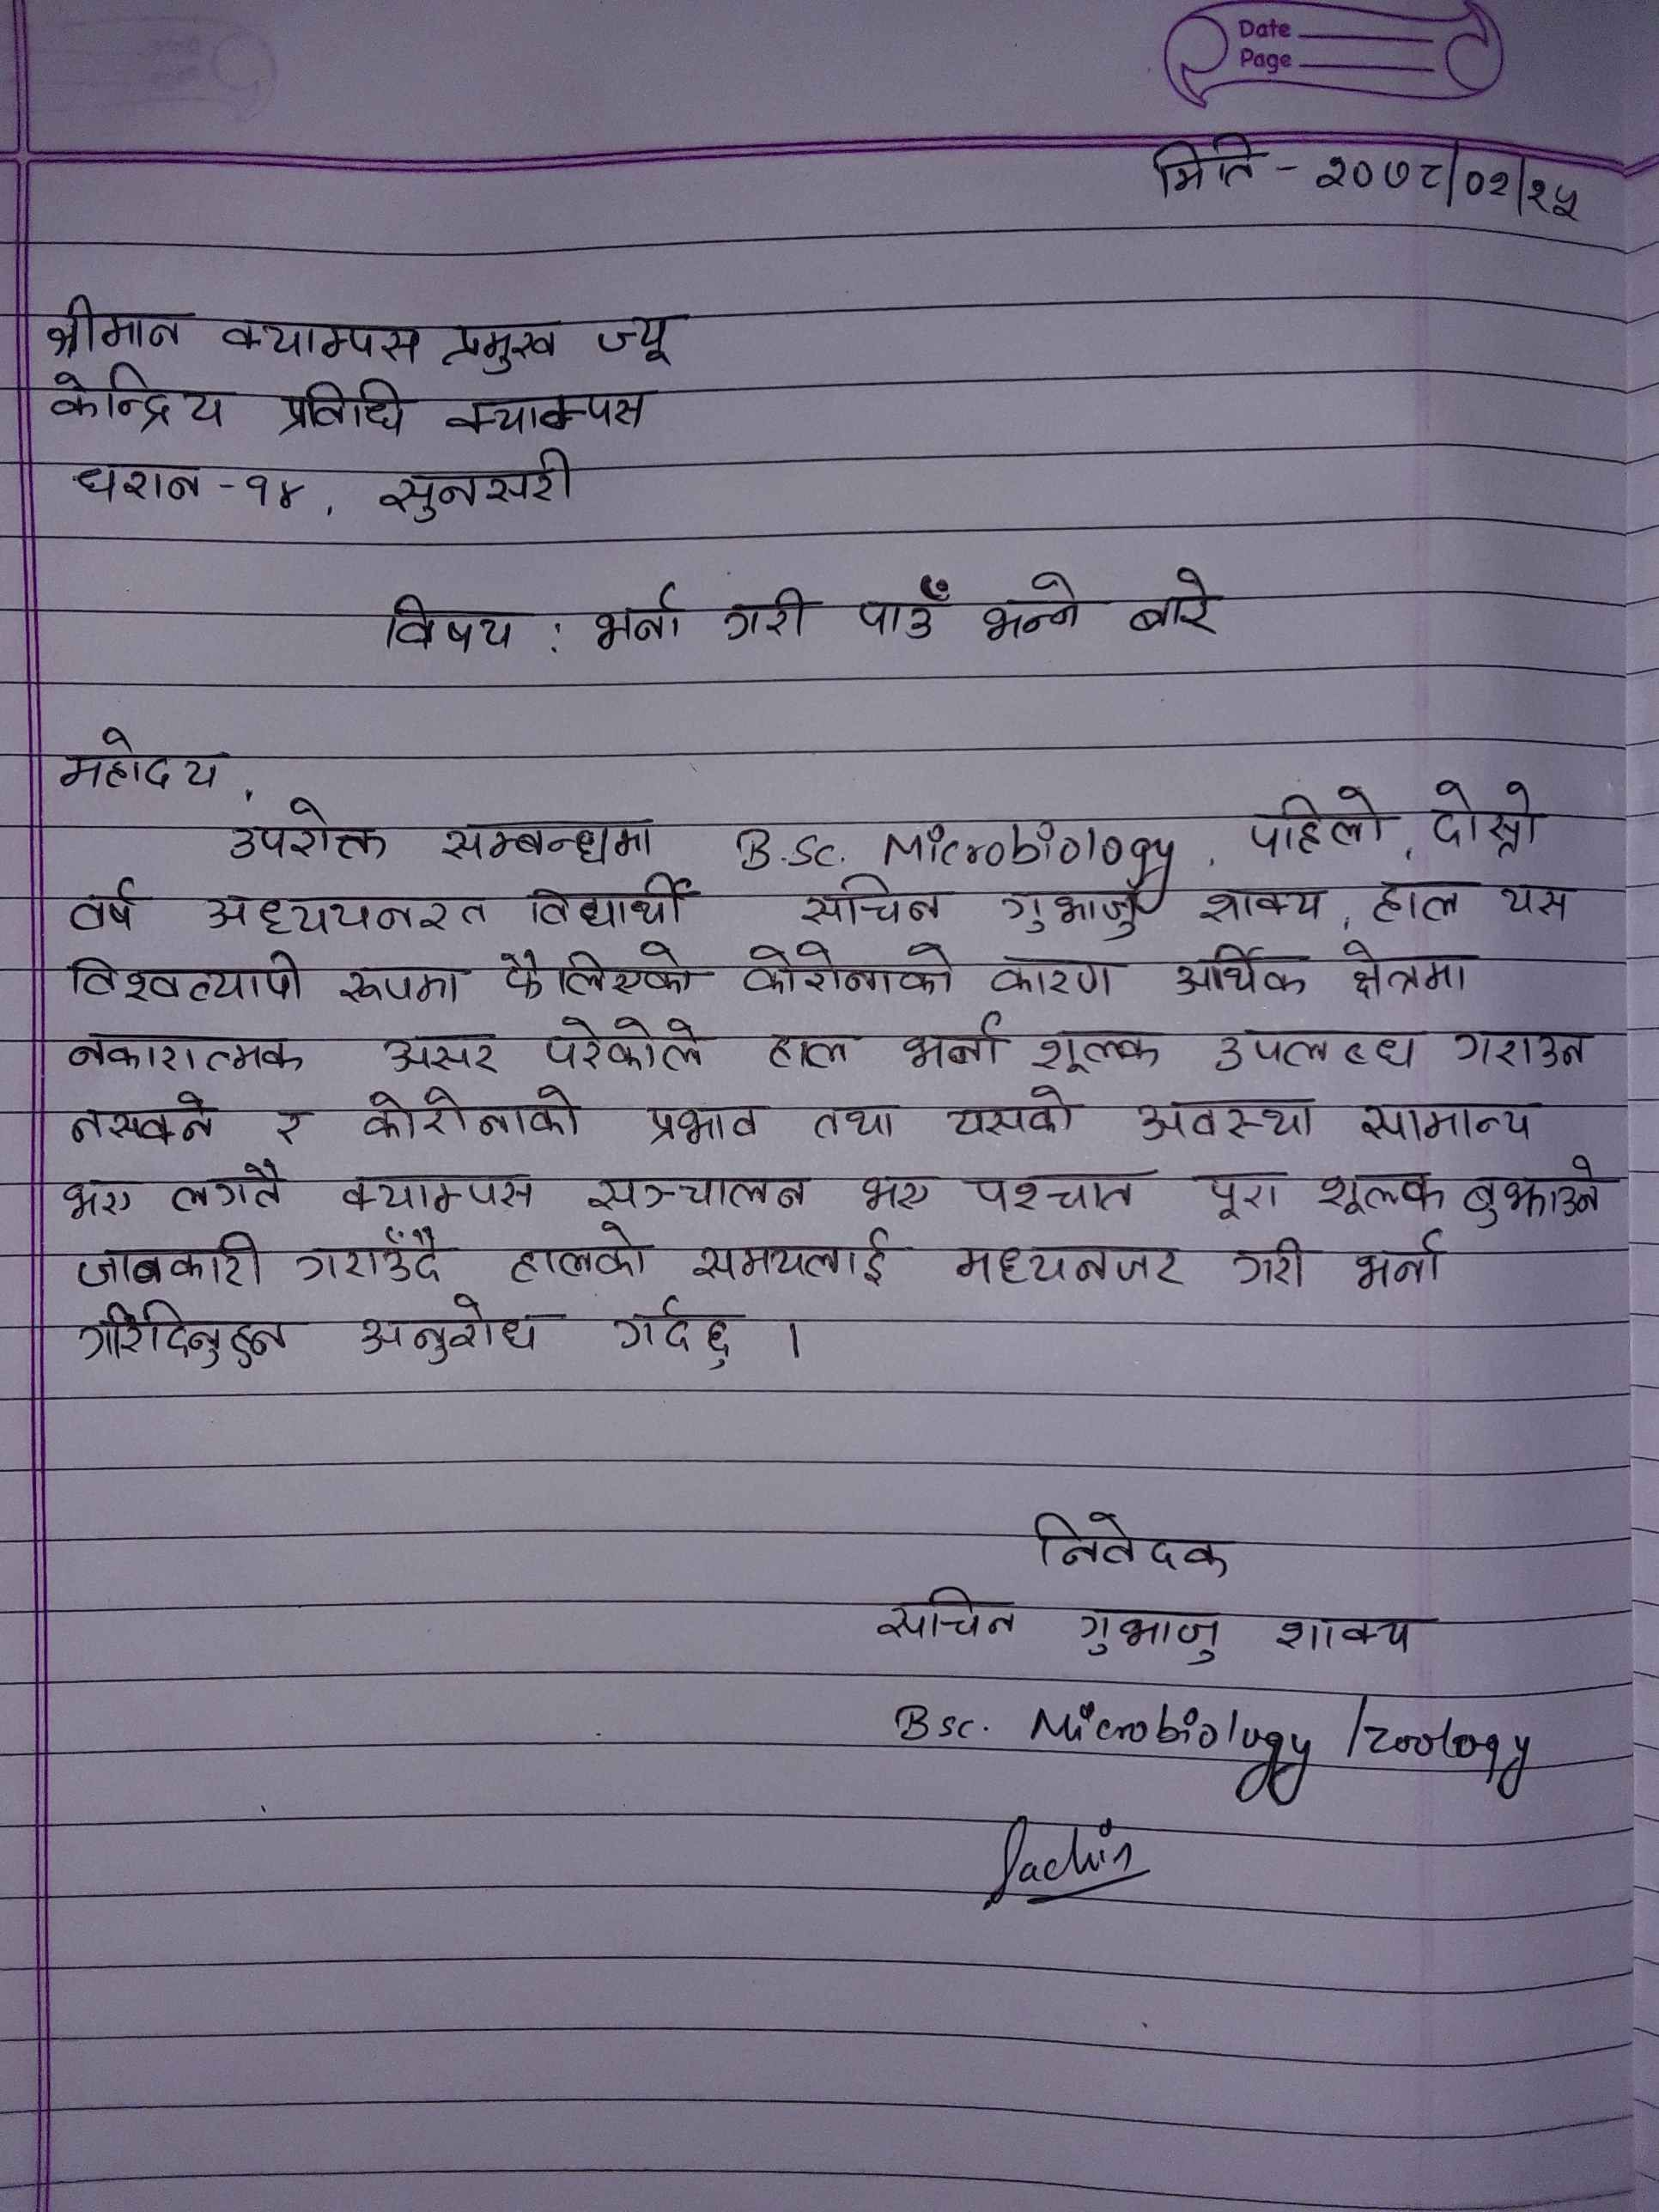 Date
Page
मिति - २०७८/०२/२५
श्रीमान क्याम्पस प्रमुख ज्यू
केन्द्रिय प्रविधि क्याम्पस
धरान - १४, सुनसरी
विषय : भर्ना गरी पाउँ भन्ने बारे
महोदय,
उपरोक्त सम्बन्धमा B.Sc. Microbiology, पहिलो, दोस्रो
वर्ष अध्ययनरत विद्यार्थी सचिन गुभाजु शाक्य, हाल यस
विश्वव्यापी रूपमा फैलिएको कोरोनाको कारण आर्थिक क्षेत्रमा
नकारात्मक असर परेकोले हाल भर्ना शूल्क उपलब्ध गराउन
नसक्ने र कोरोनाको प्रभाव तथा यसको अवस्था सामान्य
भए लगतै क्याम्पस सञ्चालन भए पश्चात पूरा शूल्क बुझाउने
जानकारी गराउँदै हालको समयलाई मध्यनजर गरी भर्ना
गरिदिनुहुन अनुरोध गर्दछु ।
निवेदक
सचिन गुभाजु शाक्य
Bsc. Microbiology / Zoology
Sachin